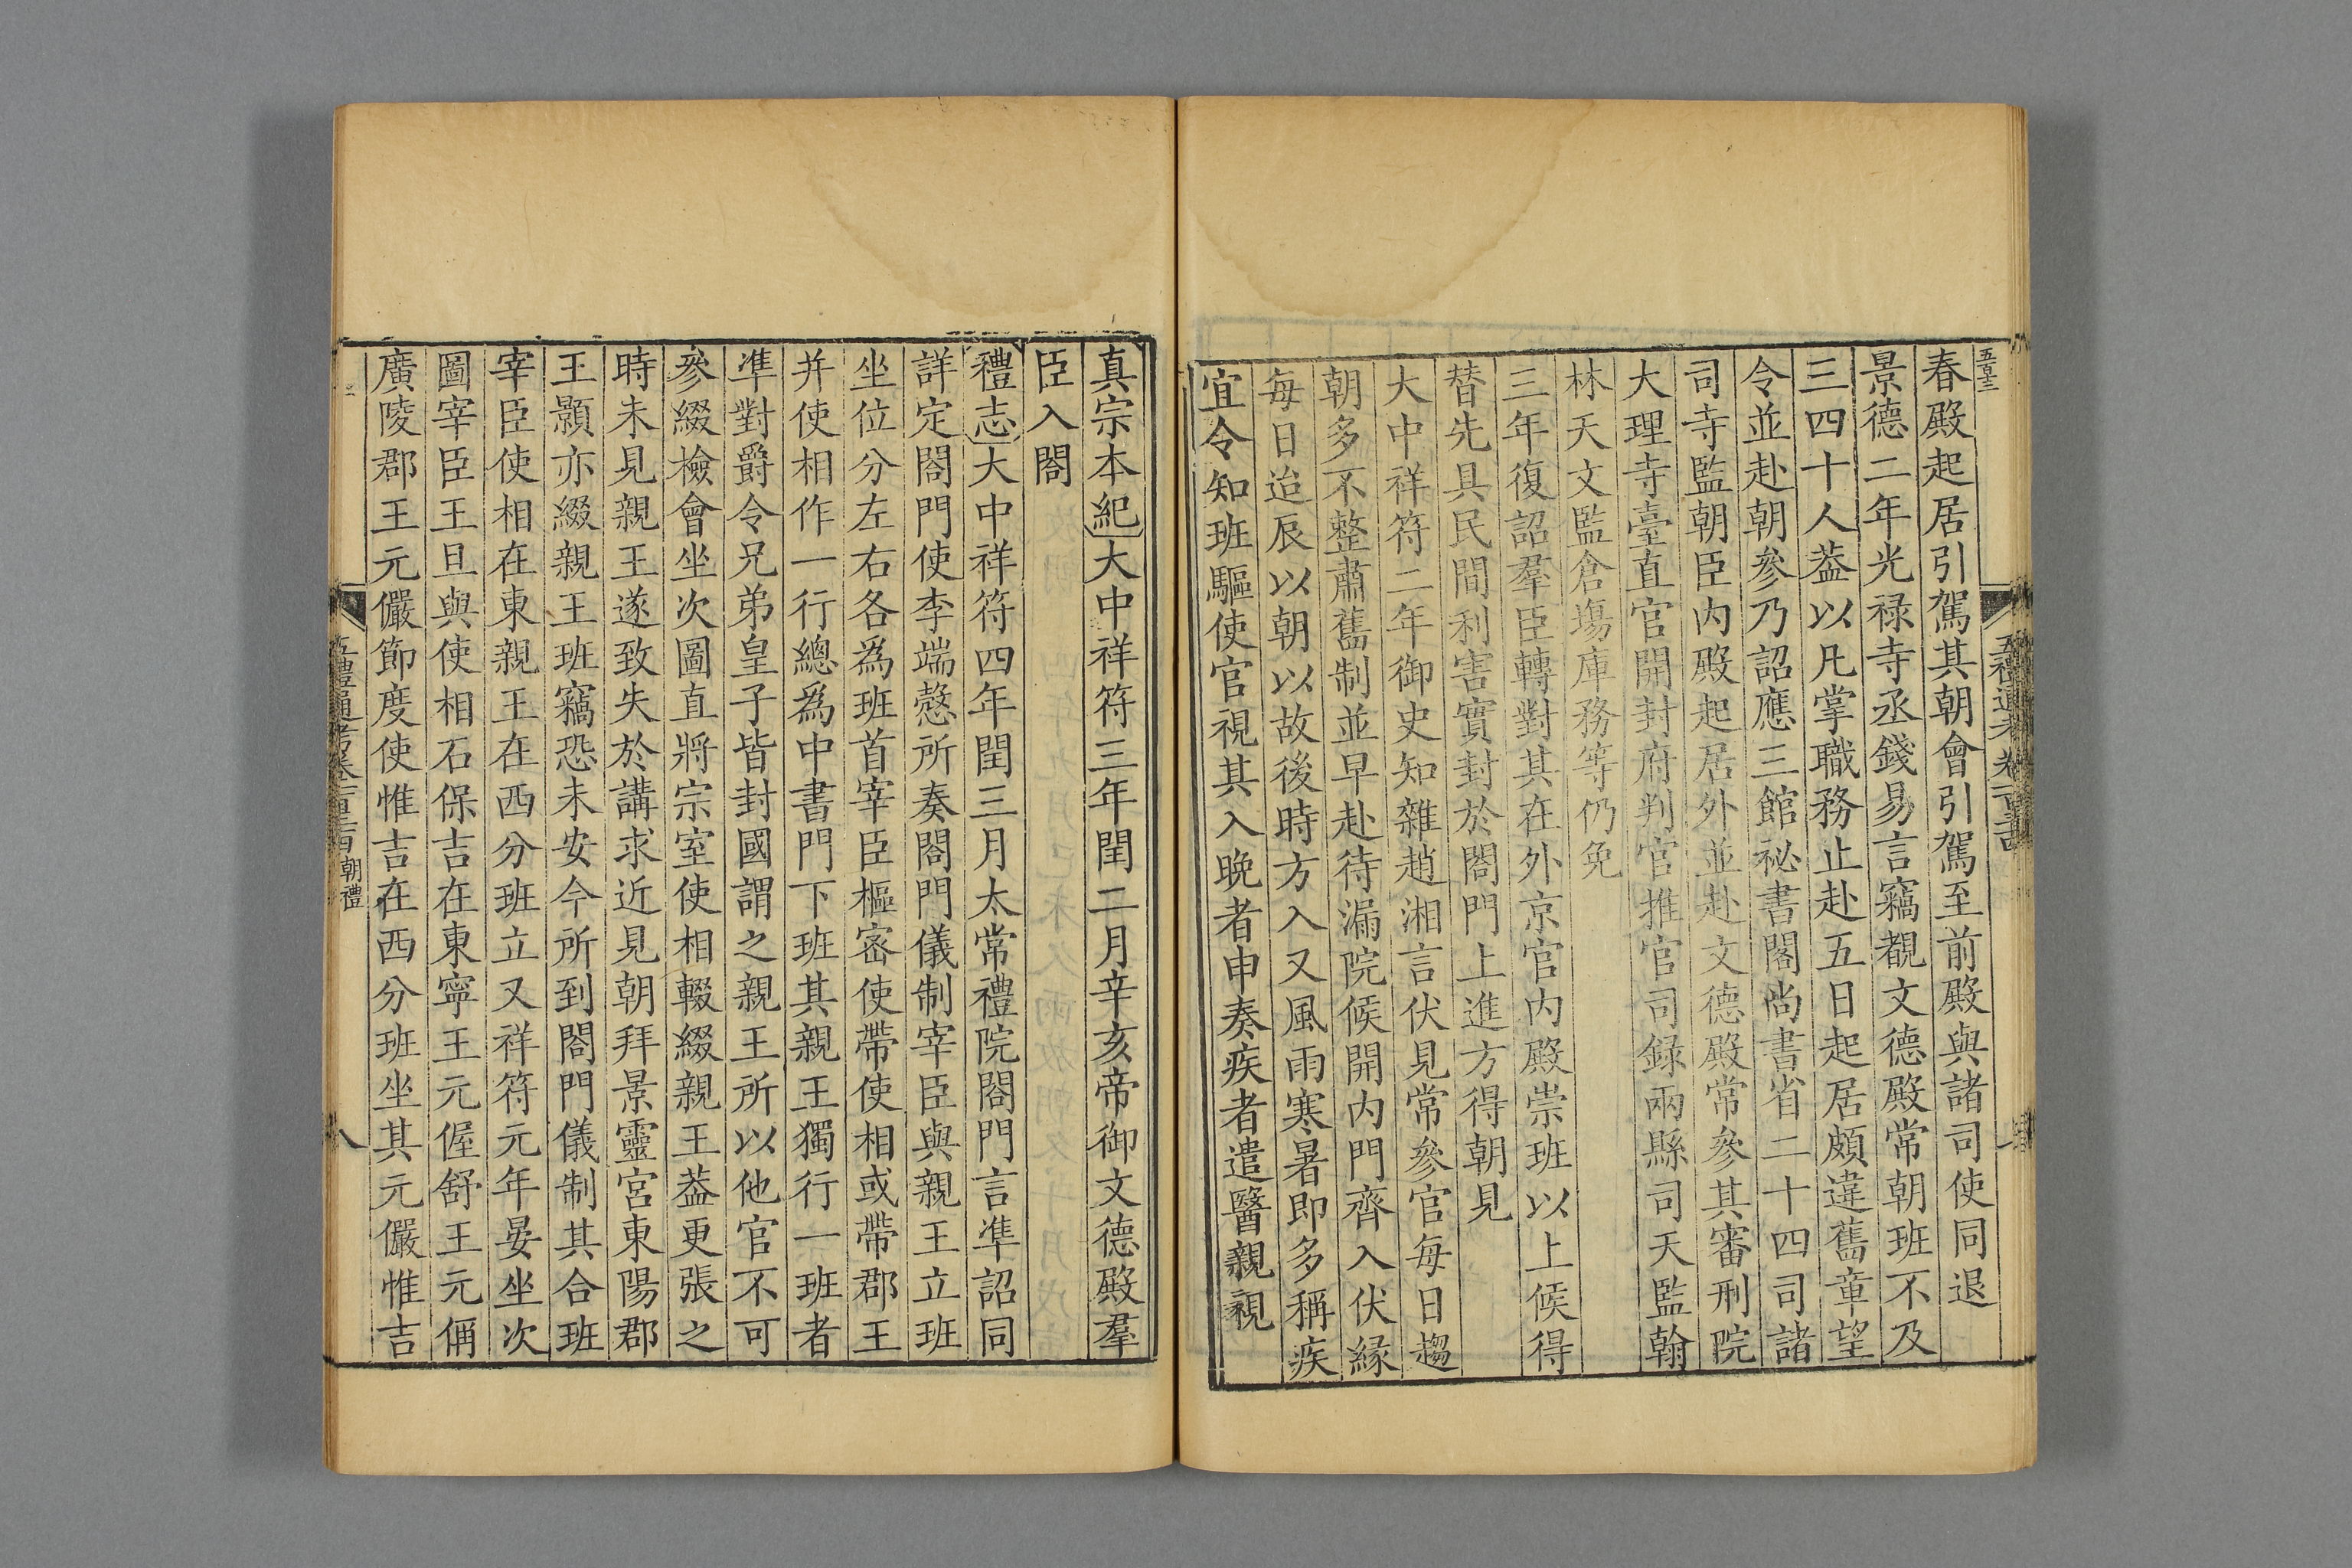 五百三
春殿起居引駕其朝會引駕至前殿與諸司使同退
景德二年光禄寺丞錢易言竊覩文德殿常朝班不及
三四十人葢以凡掌職務止赴五日起居頗違舊章望
令並赴朝參乃詔應三館祕書閣尚書省二十四司諸
司寺監朝臣内殿起居外並赴文德殿常參其審刑院
大理寺臺直官開封府判官推官司録兩縣司天監翰
林天文監倉場庫務等仍免
三年復詔羣臣轉對其在外京官内殿崇班以上候得
替先具民間利害實封於閤門上進方得朝見
大中祥符二年御史知雜趙湘言伏見常參官每日趨
朝多不整肅舊制並早赴待漏院候開内門齊入伏縁
每日迨辰以朝以故後時方入又風雨寒暑即多稱疾
宜令知班驅使官視其入晚者申奏疾者遣醫親視
真宗本紀大中祥符三年閏二月辛亥帝御文德殿羣
臣入閤
禮志大中祥符四年閏三月太常禮院閤門言準詔同
詳定閤門使李端愨所奏閤門儀制宰臣與親王立班
坐位分左右各爲班首宰臣樞密使帶使相或帶郡王
并使相作一行總爲中書門下班其親王獨行一班者
準對爵令兄弟皇子皆封國謂之親王所以他官不可
參綴檢會坐次圖直將宗室使相輟綴親王葢更張之
時未見親王遂致失於講求近見朝拜景靈宮東陽郡
王顥亦綴親王班竊恐未安今所到閤門儀制其合班
宰臣使相在東親王在西分班立又祥符元年晏坐次
圖宰臣王旦與使相石保吉在東寧王元偓舒王元偁
廣陵郡王元儼節度使惟吉在西分班坐其元儼惟吉
五禮通考卷一百三十四 朝禮
八